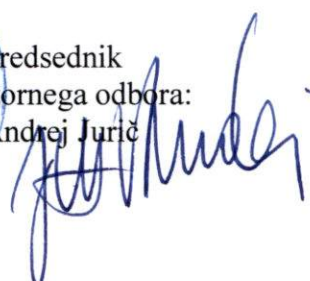 redsednik
ornega odbora:
ndrej Jurič